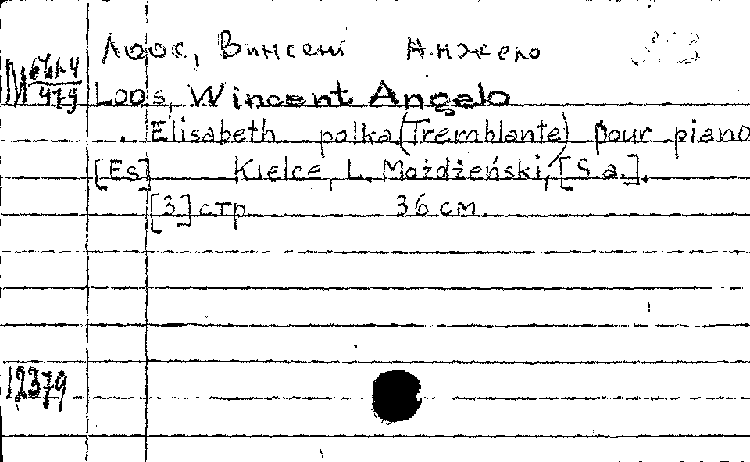 Лоос, Винсент Анжело
Loos, Wincent Angelo
Elisabeth polka (Tremblante) pour piano
[Es] Kielce, L. Możdżeński, [S.a.].
[3] стр. 36 см.
12379